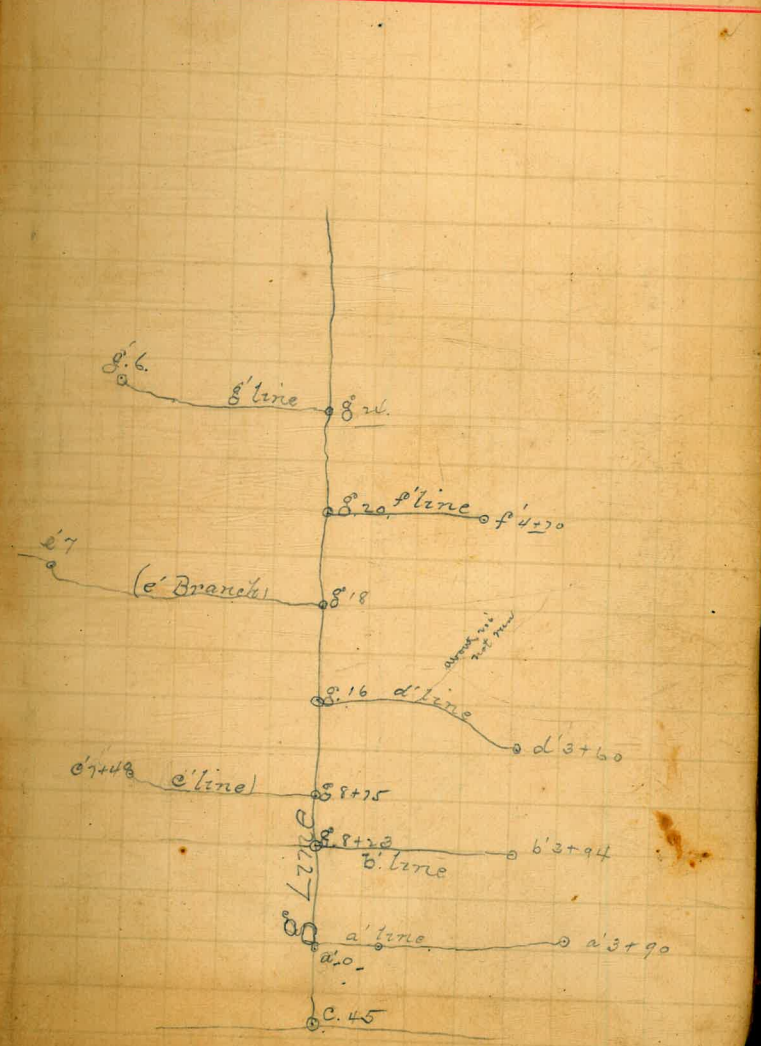 g'.6.
g' line
g 24.
g.20.
f' line
f'4+70
e'7
(e' Branch)
g'18
not run
g.16
d' line
d'3+60
c'7+48
c' line)
g.8+75
g.8+23
b'3+94
b'. line
g Line
a' line
a'3+90
a'.0.
C. 45